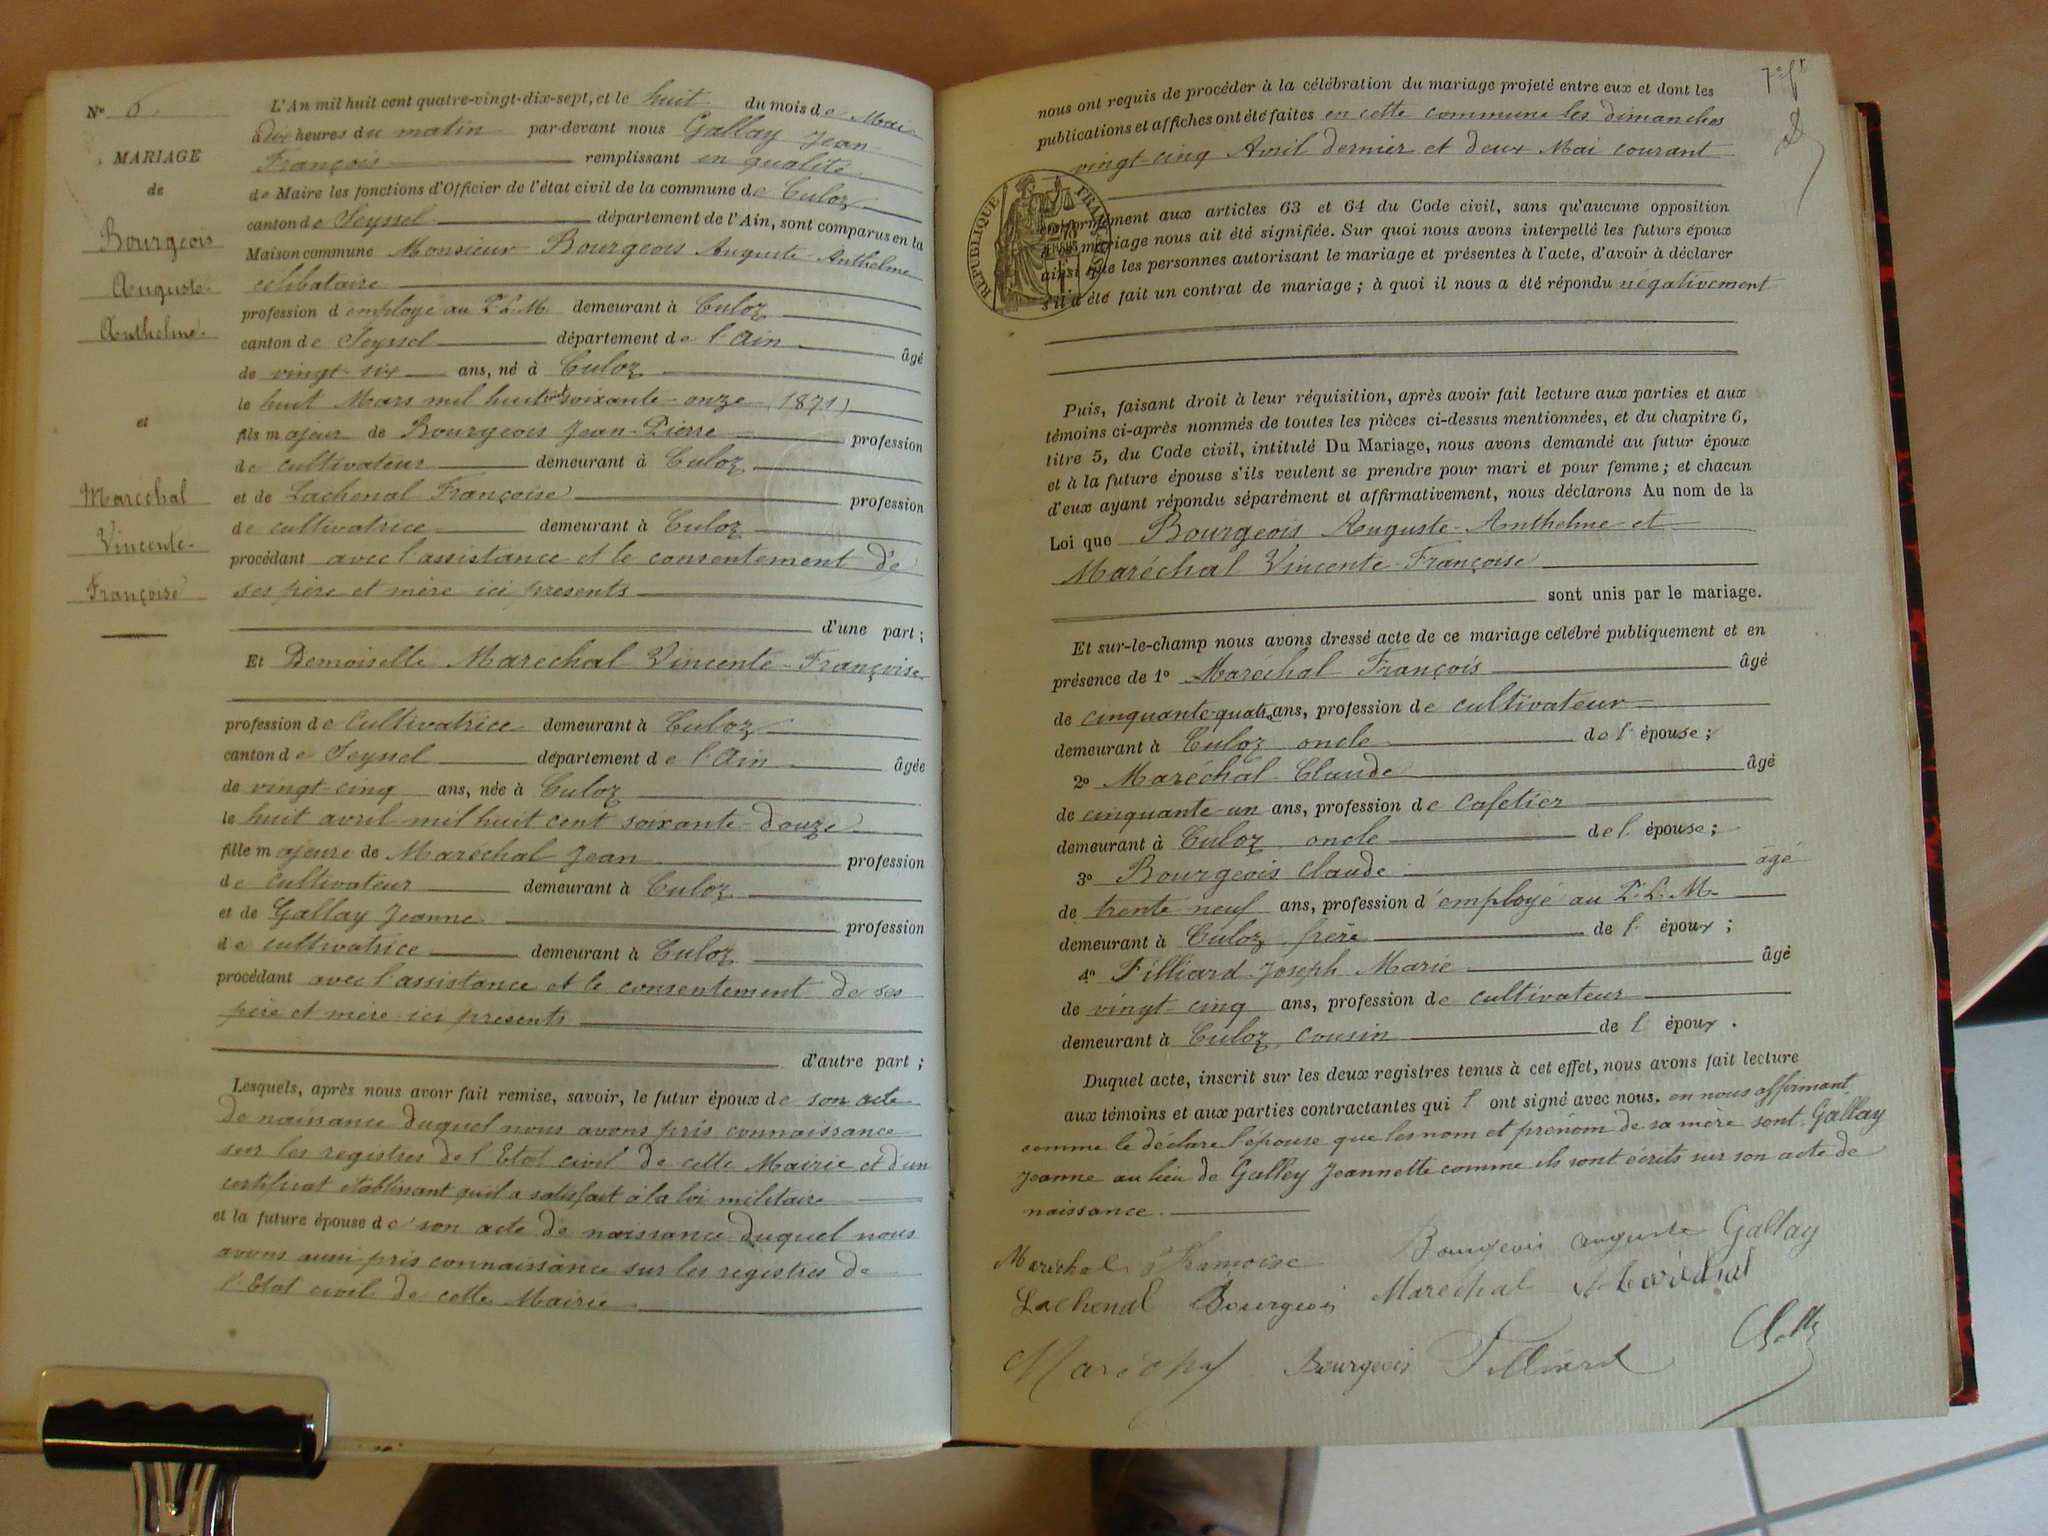 N° 6
MARIAGE
de
Bourgeois
Auguste-
Anthelme-
et
Maréchal
Vincente-
Françoise
L'An mil huit cent quatre-vingt-dix-sept, et le huit du mois de Mai
à dix heures du matin par-devant nous Gallay Jean-
François remplissant en qualité
de Maire les fonctions d'Officier de l'état civil de la commune de Culoz
canton de Seyssel département de l'Ain, sont comparus en la
Maison commune Monsieur Bourgeois Auguste-Anthelme
célibataire
profession d employé au P.L.M. demeurant à Culoz
canton de Seyssel département de l'Ain âgé
de vingt-six ans, né à Culoz
le huit Mars mil huit cent soixante-onze (1871)
fils majeur de Bourgeois Jean-Pierre profession
de cultivateur demeurant à Culoz
et de Lachenal Françoise profession
de cultivatrice demeurant à Culoz
procédant avec l'assistance et le consentement de
ses père et mère ici présents
d'une part ;
Et Demoiselle Maréchal Vincente-Françoise
profession de cultivatrice demeurant à Culoz
canton de Seyssel département de l'Ain âgée
de vingt-cinq ans, née à Culoz
le huit avril mil huit cent soixante-douze
fille majeure de Maréchal Jean profession
de cultivateur demeurant à Culoz
et de Gallay Jeanne profession
de cultivatrice demeurant à Culoz
procédant avec l'assistance et le consentement de ses
père et mère ici présents
d'autre part ;
Lesquels, après nous avoir fait remise, savoir, le futur époux de son acte
de naissance duquel nous avons pris connaissance
sur les registres de l'Etat civil de cette Mairie et d'un
certificat établissant qu'il a satisfait à la loi militaire
et la future épouse de son acte de naissance duquel nous
avons aussi pris connaissance sur les registres de
l'Etat civil de cette Mairie
nous ont requis de procéder à la célébration du mariage projeté entre eux et dont les
publications et affiches ont été faites en cette commune les dimanches
vingt-cinq Avril dernier et deux Mai courant
RÉPUBLIQUE FRANÇAISE
conformément aux articles 63 et 64 du Code civil, sans qu'aucune opposition
à ce mariage nous ait été signifiée. Sur quoi nous avons interpellé les futurs époux
ainsi que les personnes autorisant le mariage et présentes à l'acte, d'avoir à déclarer
s'il a été fait un contrat de mariage ; à quoi il nous a été répondu négativement
Puis, faisant droit à leur réquisition, après avoir fait lecture aux parties et aux
témoins ci-après nommés de toutes les pièces ci-dessus mentionnées, et du chapitre 6,
titre 5, du Code civil, intitulé Du Mariage, nous avons demandé au futur époux
et à la future épouse s'ils veulent se prendre pour mari et pour femme ; et chacun
d'eux ayant répondu séparément et affirmativement, nous déclarons Au nom de la
Loi que Bourgeois Auguste-Anthelme et
Maréchal Vincente-Françoise
sont unis par le mariage.
Et sur-le-champ nous avons dressé acte de ce mariage célébré publiquement et en
présence de 1° Maréchal François âgé
de cinquante-quatre ans, profession de cultivateur
demeurant à Culoz oncle de l' épouse ;
2° Maréchal Claude âgé
de cinquante-un ans, profession de cafetier
demeurant à Culoz oncle de l' épouse ;
3° Bourgeois Claude âgé
de trente neuf ans, profession d'employé au P.L.M.
demeurant à Culoz frère de l' époux ;
4° Filliard Joseph Marie âgé
de vingt-cinq ans, profession de cultivateur
demeurant à Culoz cousin de l' époux .
Duquel acte, inscrit sur les deux registres tenus à cet effet, nous avons fait lecture
aux témoins et aux parties contractantes qui l' ont signé avec nous. en nous affirmant
comme le déclare l'épouse que les nom et prénom de sa mère sont Gallay
Jeanne au lieu de Galley Jeannette comme ils sont écrits sur son acte de
naissance.
Maréchal Françoise Bourgeois Auguste Gallay
Lachenal Bourgeois Maréchal Maréchal
Maréchal Bourgeois Filliard